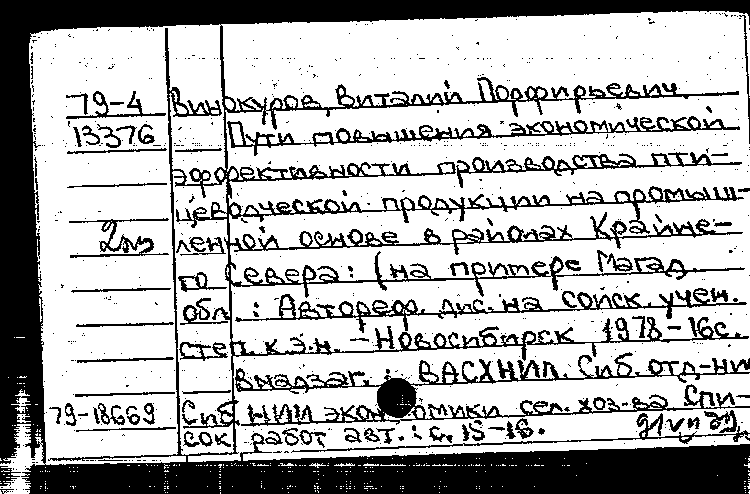 79-4 Винокуров, Виталий Порфирьевич.
13376 Пути повышения экономической
эффективности производства пти-
цеводческой продукции на промыш-
2 ленной основе в районах Крайне-
го Севера: (на примере Магад.
обл.: Автореф. дис. на соиск. учен.
степ. к.э.н. - Новосибирск, 1978 - 16с.
В надзаг.: ВАСХНИЛ. Сиб. отд-ни
79-18669 Сиб. НИИ экономики сел. хоз-ва Спи-
сок работ авт.: с. 15-16.